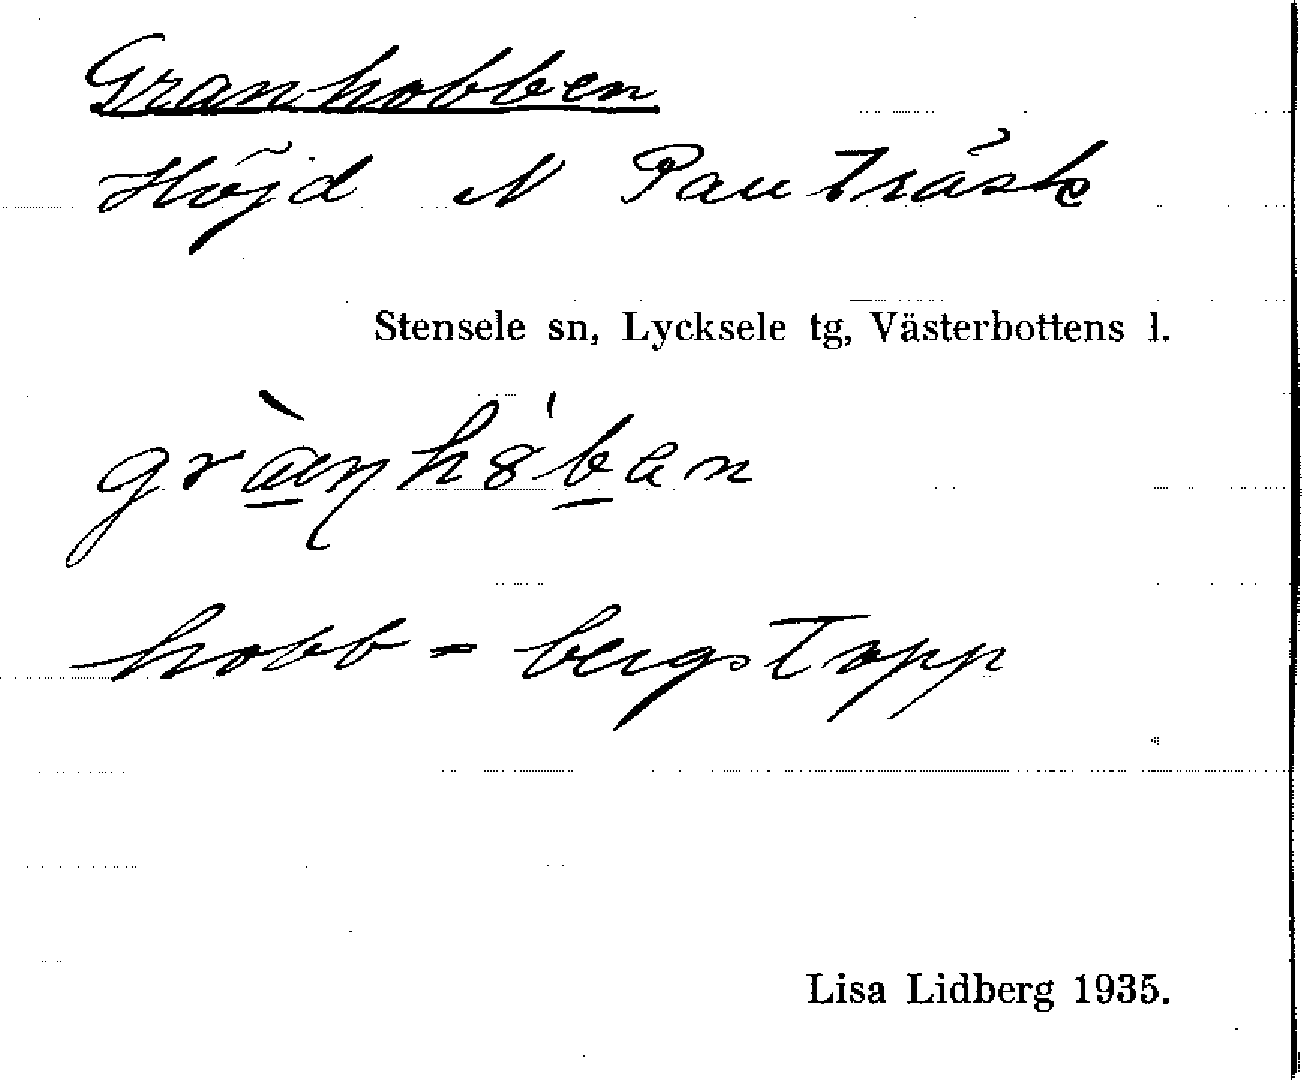 Granhobben
Höjd N Pauträsk
Stensele sn, Lycksele tg, Västerbottens l.
hobb = bergstopp
Lisa Lidberg 1935.